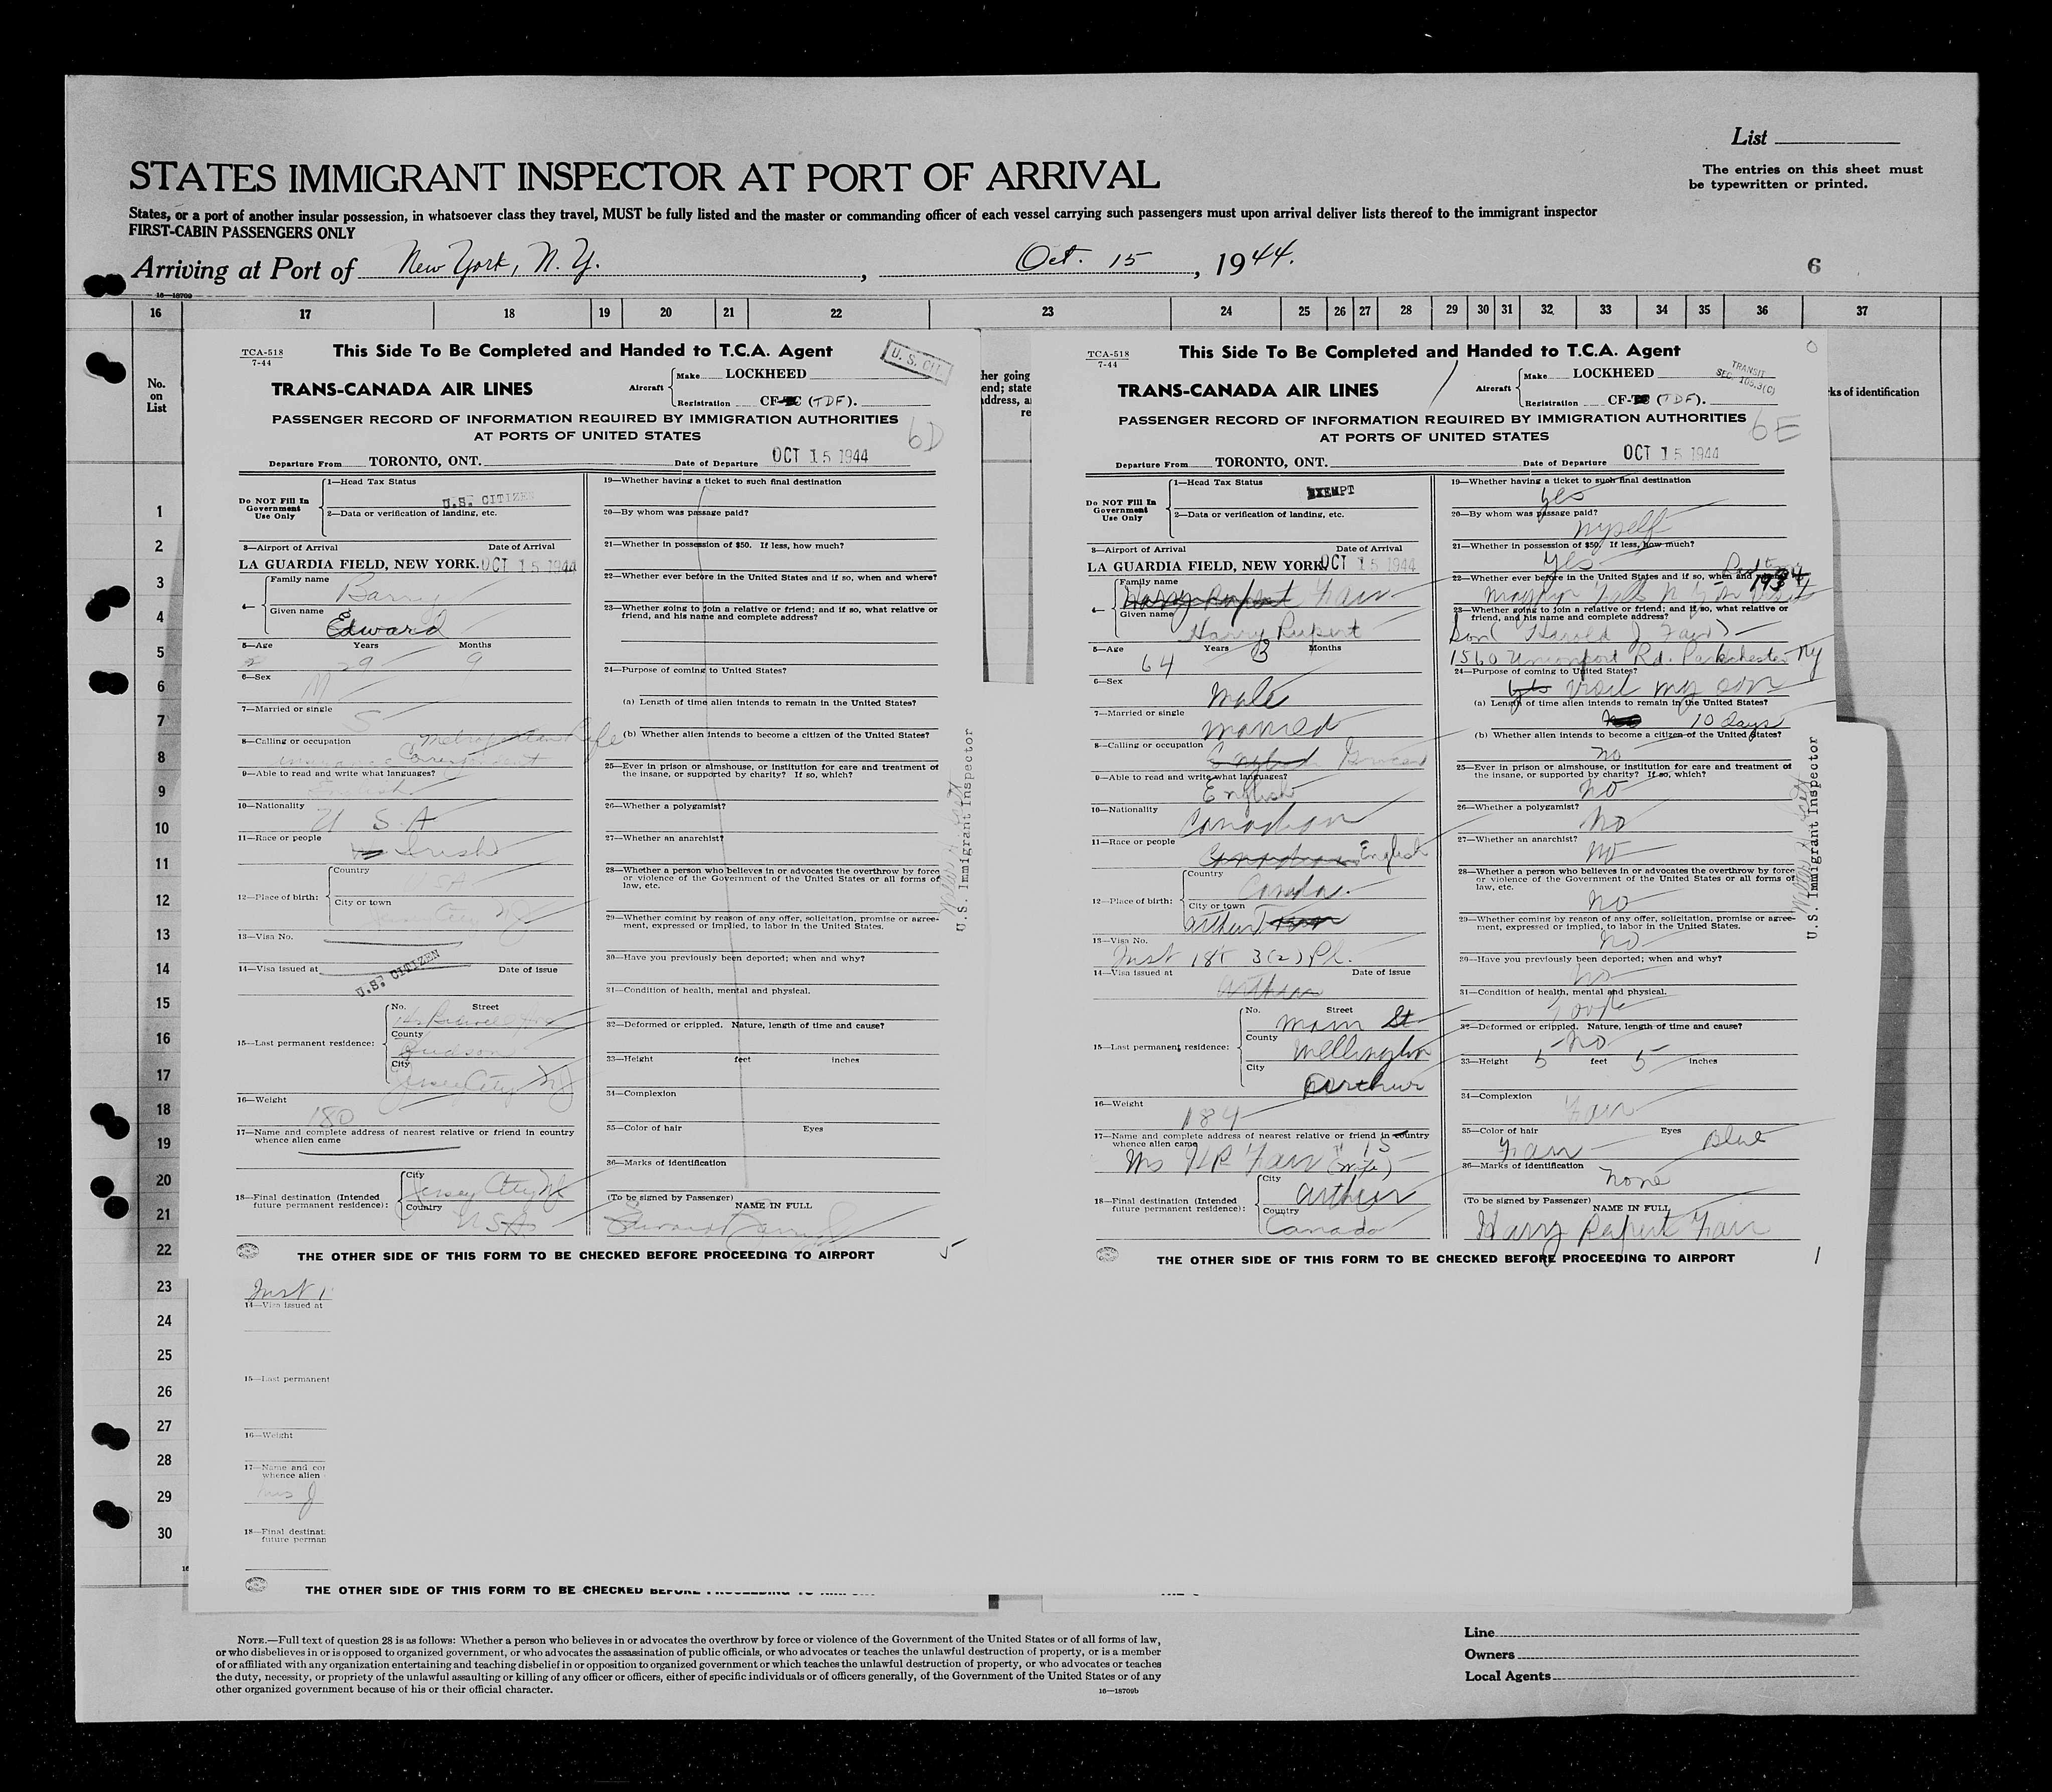 List
STATES IMMIGRANT INSPECTOR AT PORT OF ARRIVAL
The entries on this sheet must
be typewritten or printed.
States, or a port of another insular possession, in whatsoever class they travel, MUST be fully listed and the master or commanding officer of each vessel carrying such passengers must upon arrival deliver lists thereof to the immigrant inspector
FIRST-CABIN PASSENGERS ONLY
Arriving at Port of New York, N. Y., Oct. 15, 1944.
6
16—18709
16 17 18 19 20 21 22 23 24 25 26 27 28 29 30 31 32 33 34 35 36 37
No.
on
List
1
2
3
4
5
6
7
8
9
10
11
12
13
14
15
16
17
18
19
20
21
22
23
24
25
26
27
28
29
30
TCA-518
7-44
This Side To Be Completed and Handed to T.C.A. Agent
U. S. CIT.
TRANS-CANADA AIR LINES
Aircraft
Make LOCKHEED
Registration CF- (TDF).
PASSENGER RECORD OF INFORMATION REQUIRED BY IMMIGRATION AUTHORITIES
AT PORTS OF UNITED STATES
6D
Departure From TORONTO, ONT. Date of Departure OCT 15 1944
Do NOT Fill In
Government
Use Only
1—Head Tax Status
U.S. CITIZEN
2—Data or verification of landing, etc.
3—Airport of Arrival Date of Arrival
LA GUARDIA FIELD, NEW YORK. OCT 15 1944
4—
Family name
Barry
Given name
Edward
5—Age Years Months
29 9
6—Sex
M
7—Married or single
S
8—Calling or occupation Metropolitan Life
Insurance Correspondent
9—Able to read and write what languages?
English
10—Nationality
U S A
11—Race or people
Irish
12—Place of birth:
Country
USA
City or town
Jersey City NJ
13—Visa No.
14—Visa issued at Date of issue
U.S. CITIZEN
15—Last permanent residence:
No. Street
County
Hudson
City
Jersey City NJ
16—Weight
180
17—Name and complete address of nearest relative or friend in country
whence alien came
18—Final destination (Intended
future permanent residence):
City
Jersey City NJ
Country
USA
19—Whether having a ticket to such final destination
20—By whom was passage paid?
21—Whether in possession of $50. If less, how much?
22—Whether ever before in the United States and if so, when and where?
23—Whether going to join a relative or friend; and if so, what relative or
friend, and his name and complete address?
24—Purpose of coming to United States?
(a) Length of time alien intends to remain in the United States?
(b) Whether alien intends to become a citizen of the United States?
25—Ever in prison or almshouse, or institution for care and treatment of
the insane, or supported by charity? If so, which?
26—Whether a polygamist?
27—Whether an anarchist?
28—Whether a person who believes in or advocates the overthrow by force
or violence of the Government of the United States or all forms of
law, etc.
29—Whether coming by reason of any offer, solicitation, promise or agree-
ment, expressed or implied, to labor in the United States.
30—Have you previously been deported; when and why?
31—Condition of health, mental and physical.
32—Deformed or crippled. Nature, length of time and cause?
33—Height feet inches
34—Complexion
35—Color of hair Eyes
36—Marks of identification
(To be signed by Passenger)
NAME IN FULL
Edward Barry
THE OTHER SIDE OF THIS FORM TO BE CHECKED BEFORE PROCEEDING TO AIRPORT
5
U.S. Immigrant Inspector
her going
end; state
address, a
re
TCA-518
7-44
This Side To Be Completed and Handed to T.C.A. Agent
TRANSIT
SEC. 105.3(C)
TRANS-CANADA AIR LINES
Aircraft
Make LOCKHEED
Registration CF- (TDF).
PASSENGER RECORD OF INFORMATION REQUIRED BY IMMIGRATION AUTHORITIES
AT PORTS OF UNITED STATES
6E
Departure From TORONTO, ONT. Date of Departure OCT 15 1944
Do NOT Fill In
Government
Use Only
1—Head Tax Status
EXEMPT
2—Data or verification of landing, etc.
3—Airport of Arrival Date of Arrival
LA GUARDIA FIELD, NEW YORK. OCT 15 1944
4—
Family name
Harry Rupert Fair
Given name
Harry Rupert
5—Age Years Months
64 3
6—Sex
Male
7—Married or single
Married
8—Calling or occupation
English Grocer
9—Able to read and write what languages?
English
10—Nationality
Canadian
11—Race or people
Canadian English
12—Place of birth:
Country
Canada
City or town
Arthur
13—Visa No.
Just 18t 3(2) Pl.
14—Visa issued at Date of issue
Arthur
15—Last permanent residence:
No. Street
Main St
County
Wellington
City
Arthur
16—Weight
184
17—Name and complete address of nearest relative or friend in country
whence alien came
Mrs H R Fair (Wife)
18—Final destination (Intended
future permanent residence):
City
Arthur
Country
Canada
19—Whether having a ticket to such final destination
yes
20—By whom was passage paid?
myself
21—Whether in possession of $50. If less, how much?
yes
22—Whether ever before in the United States and if so, when and where?
1934
23—Whether going to join a relative or friend; and if so, what relative or
friend, and his name and complete address?
Son (Harold J Fair)
1560 Unionport Rd. Parkchester NY
24—Purpose of coming to United States?
yes visit my son
(a) Length of time alien intends to remain in the United States?
10 days
(b) Whether alien intends to become a citizen of the United States?
no
25—Ever in prison or almshouse, or institution for care and treatment of
the insane, or supported by charity? If so, which?
no
26—Whether a polygamist?
no
27—Whether an anarchist?
no
28—Whether a person who believes in or advocates the overthrow by force
or violence of the Government of the United States or all forms of
law, etc.
no
29—Whether coming by reason of any offer, solicitation, promise or agree-
ment, expressed or implied, to labor in the United States.
no
30—Have you previously been deported; when and why?
no
31—Condition of health, mental and physical.
Good
32—Deformed or crippled. Nature, length of time and cause?
no
33—Height 5 feet 5 inches
34—Complexion
Fair
35—Color of hair Eyes
Fair Blue
36—Marks of identification
none
(To be signed by Passenger)
NAME IN FULL
Harry Rupert Fair
THE OTHER SIDE OF THIS FORM TO BE CHECKED BEFORE PROCEEDING TO AIRPORT
1
U.S. Immigrant Inspector
ks of identification
Just 1
14—Visa issued at
15—Last permanent
16—Weight
17—Name and cor
whence alien
Mrs J
18—Final destinat
future perman
THE OTHER SIDE OF THIS FORM TO BE CHECKED BEFORE PROCEEDING TO AIRPORT
NOTE.—Full text of question 28 is as follows: Whether a person who believes in or advocates the overthrow by force or violence of the Government of the United States or of all forms of law,
or who disbelieves in or is opposed to organized government, or who advocates the assassination of public officials, or who advocates or teaches the unlawful destruction of property, or is a member
of or affiliated with any organization entertaining and teaching disbelief in or opposition to organized government or which teaches the unlawful destruction of property, or who advocates or teaches
the duty, necessity, or propriety of the unlawful assaulting or killing of any officer or officers, either of specific individuals or of officers generally, of the Government of the United States or of any
other organized government because of his or their official character.
16—18709b
Line
Owners
Local Agents